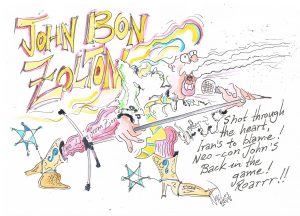 JOHN BON
ZOLTON
Shot through
the heart,
Iran's to blame!
Neo-con John's
Back in the
game!
Roarrr!!